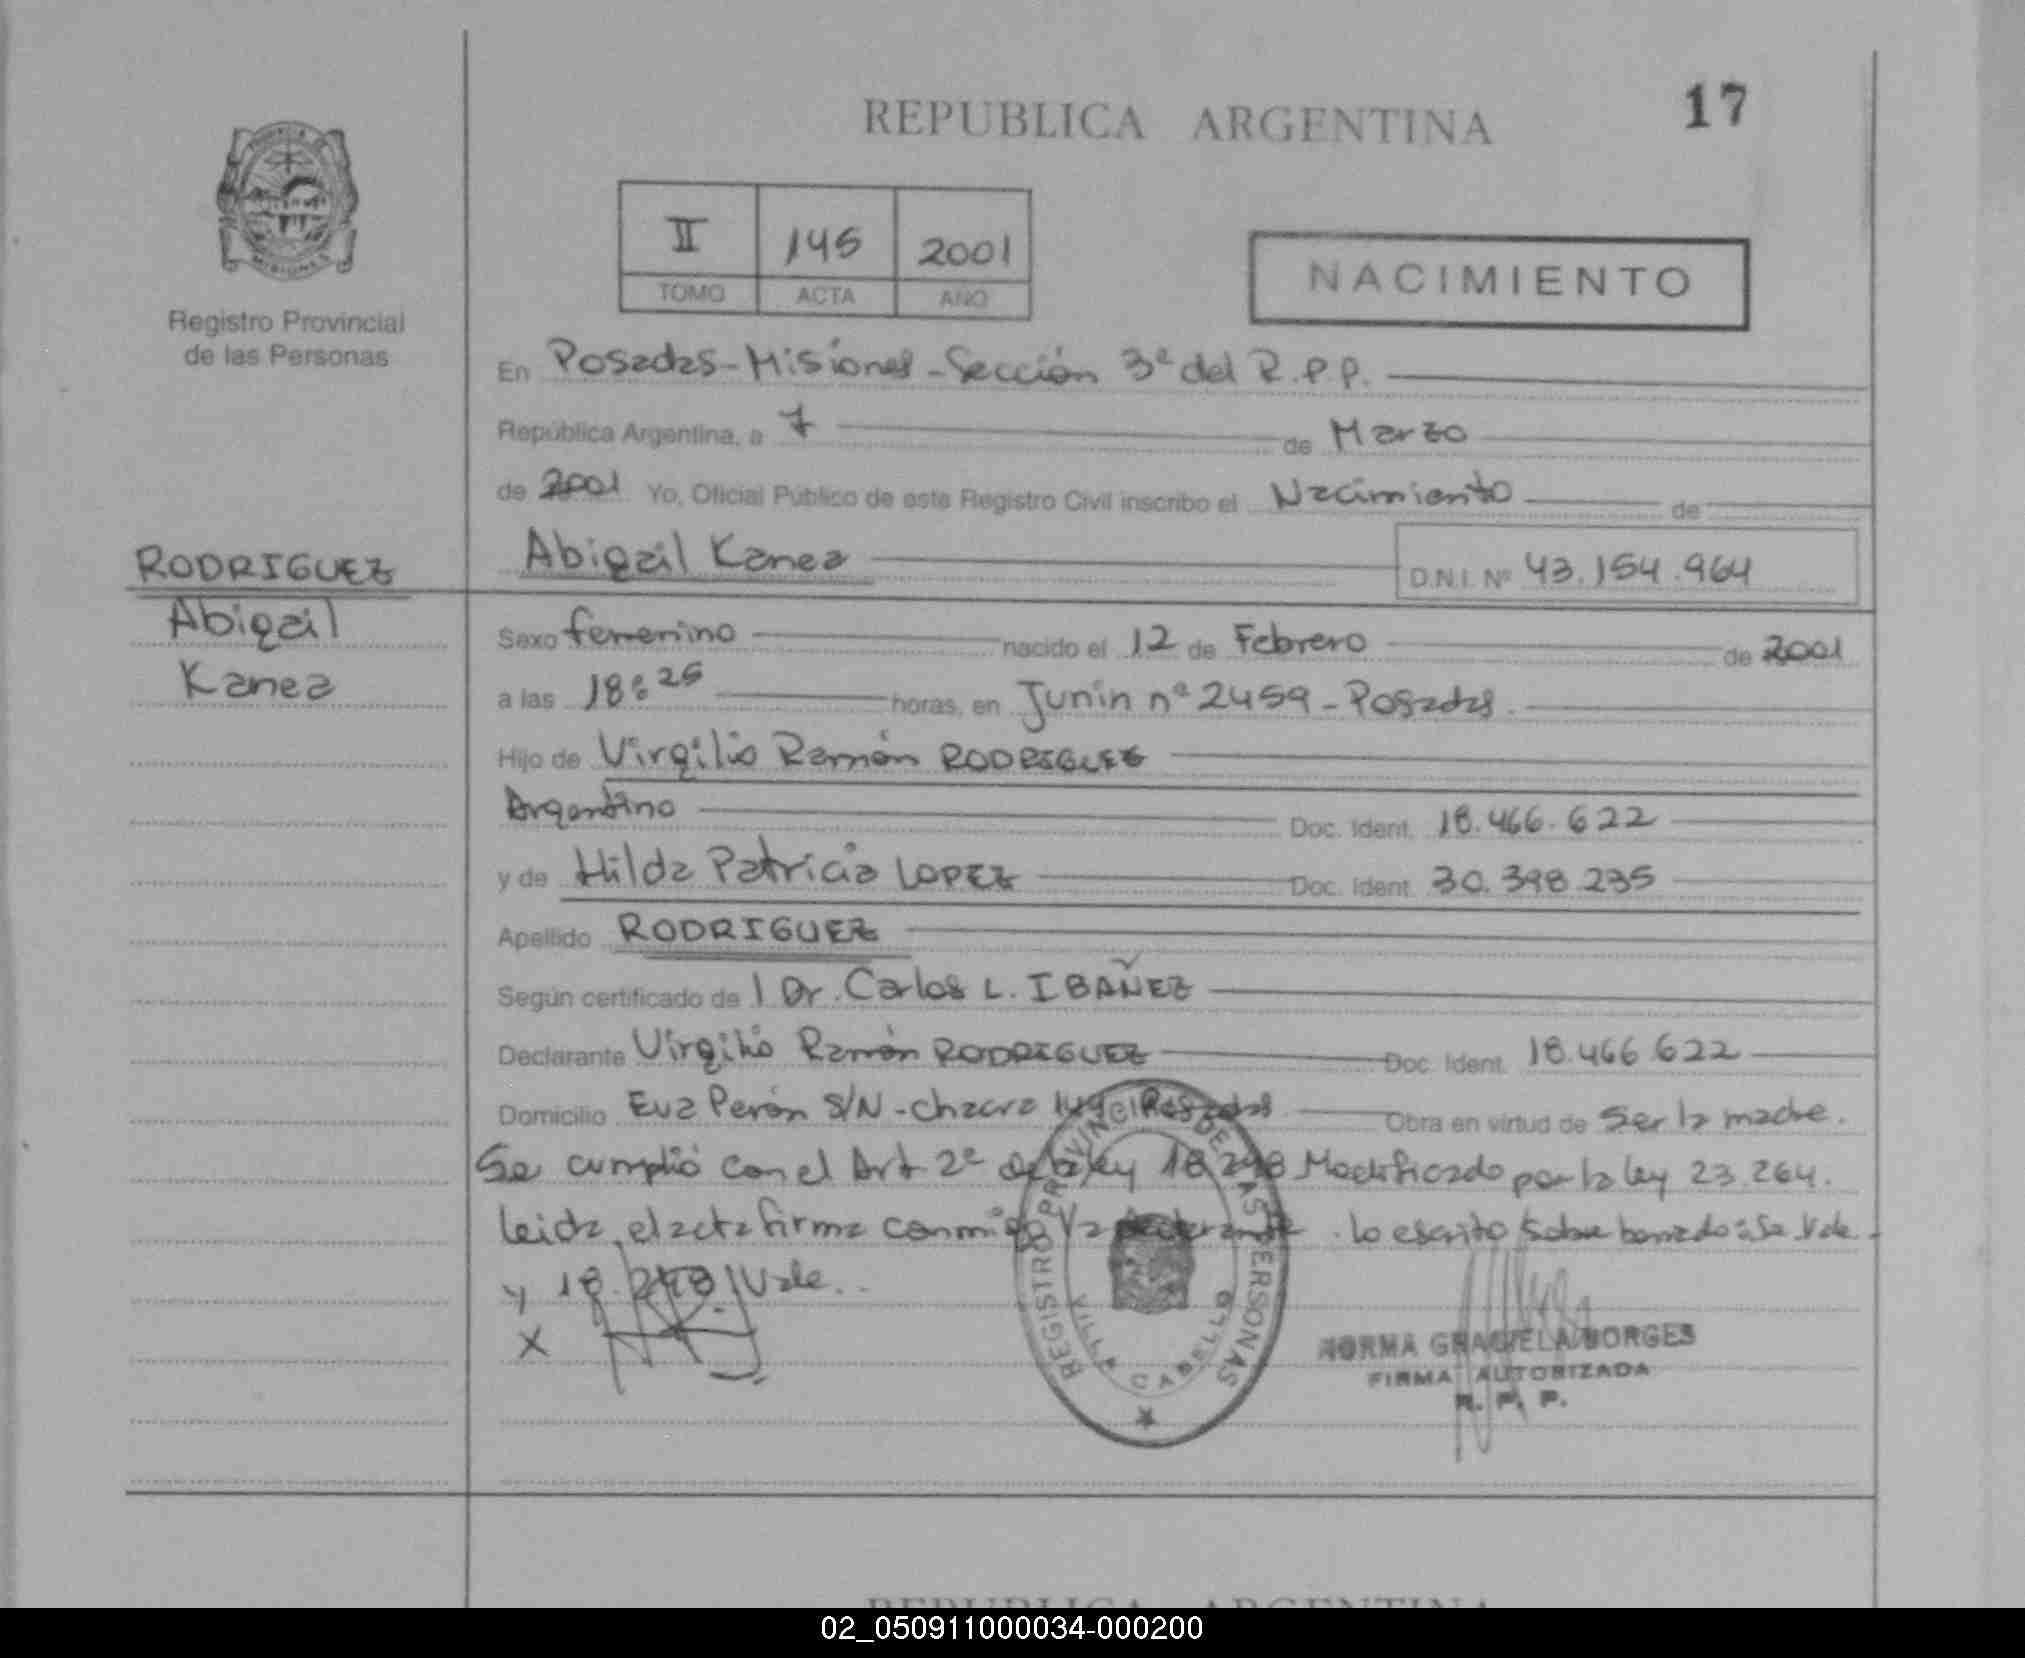 REPUBLICA ARGENTINA
17
II 145 2001
TOMO ACTA AÑO
NACIMIENTO
MISIONES
Registro Provincial
de las Personas
En Posadas-Misiones-Sección 3ª del R.P.P.
República Argentina, a 7 de Marzo
de 2001 Yo, Oficial Público de este Registro Civil inscribo el Nacimiento de
RODRIGUEZ
Abigail
Kanea
Abigail Kanea D.N.I. Nº 43.154.964
Sexo femenino nacido el 12 de Febrero de 2001
a las 18:25 horas, en Junín nº 2459 - Posadas.
Hijo de Virgilio Ramón RODRIGUEZ
Argentino Doc. Ident. 18.466.622
y de Hilda Patricia LOPEZ Doc. Ident. 30.398.235
Apellido RODRIGUEZ
Según certificado de l Dr. Carlos L. IBAÑEZ
Declarante Virgilio Ramón RODRIGUEZ Doc. Ident. 18.466.622
Domicilio Eva Perón S/N - chacra Posadas Obra en virtud de Ser la madre.
Se cumplió con el Art 2º de la ley 18.248 Modificado por la ley 23.264.
leida el acta firma conmigo la declarante. lo escrito sobre borrado: Se Vale
y 18.248 Vale.
X
REGISTRO PROVINCIAL DE LAS PERSONAS
VILLA CABELLO
NORMA GRACIELA BORGES
FIRMA AUTORIZADA
R. P. P.
REPUBLICA ARGENTINA
02_050911000034-000200